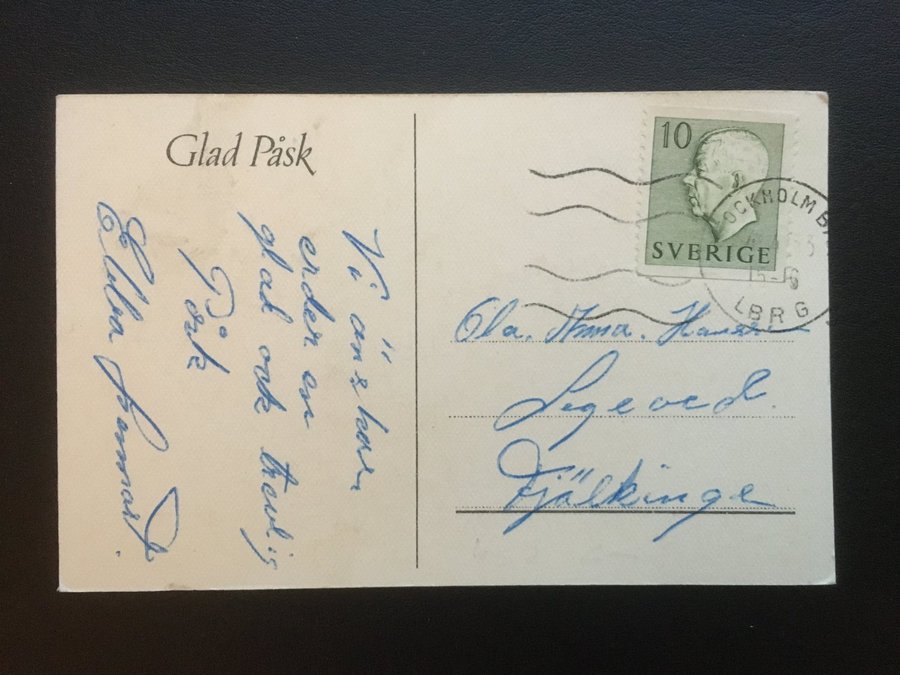 Glad Påsk
Vi önskar
eder en
glad ock trevlig
Påsk
Ebba Lennart.
10
SVERIGE
OCKHOLM BA
15-6
LBRG
Ola. Anna. Hansson
Legeved.
Fjälkinge